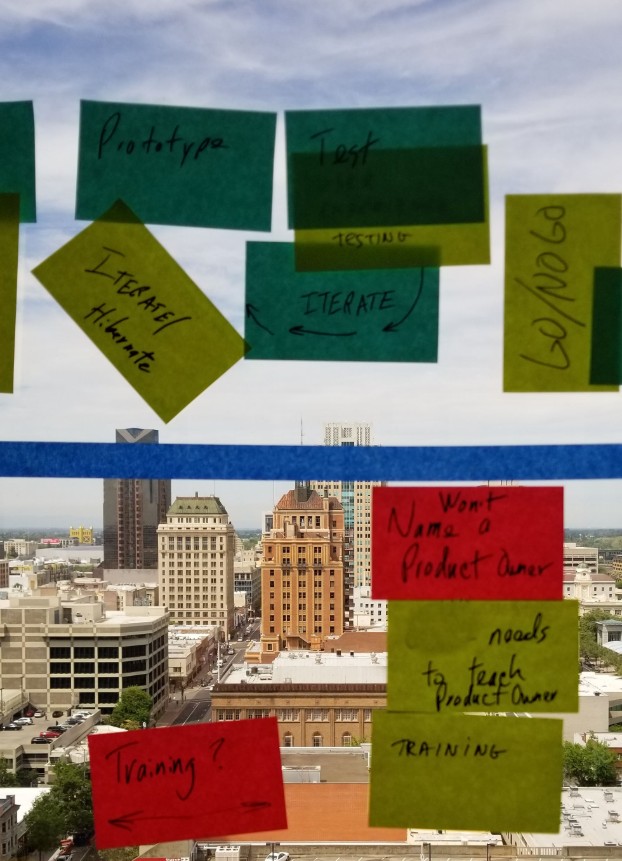 Prototype
Test
TESTING
ITERATE/
Hibernate
ITERATE
GO/NO GO
Won't
Name a
Product Owner
needs
to teach
Product Owner
Training?
TRAINING